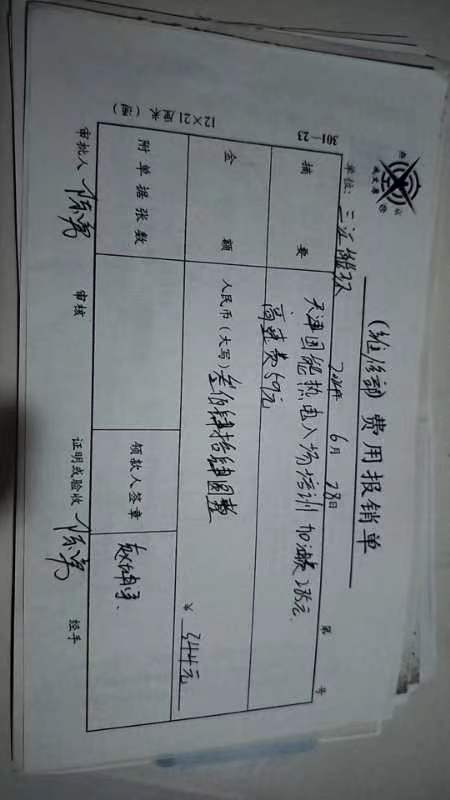 (维修部)费用报销单
单位:三正维权
2024年 6月 28日
第 号
摘要
天津国能热电入场培训 加油费285元
高速费59元
金额
人民币(大写)叁佰肆拾肆圆整
¥ 344元
附单据张数
领款人签章
审批人
审核
证明或验收
经手
301—23
12×21厘米(涵)